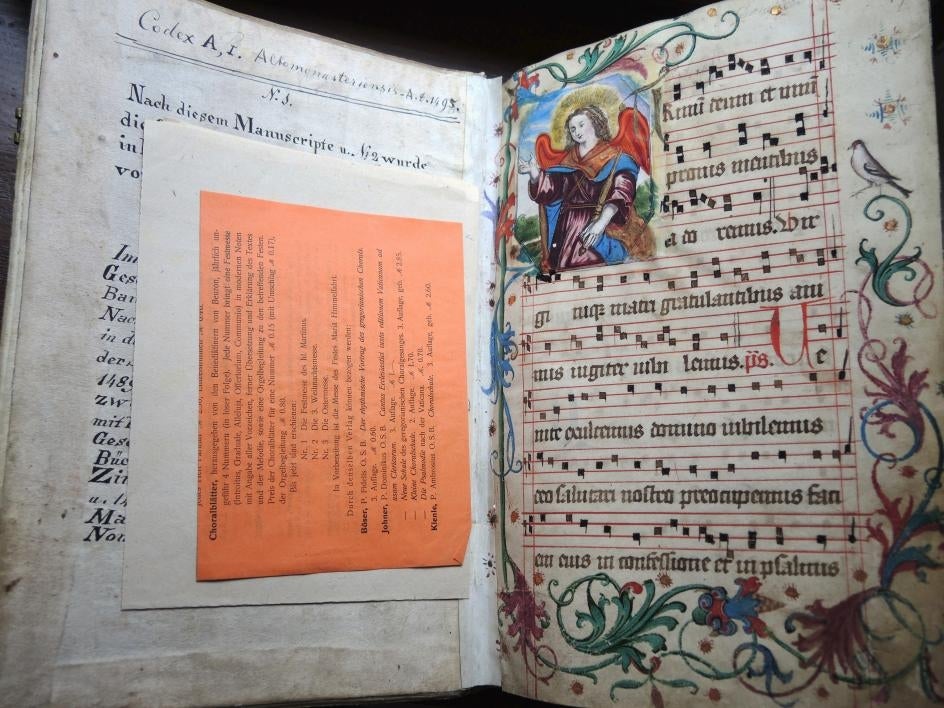 Codex A, I. Altomonasteriensis - A.d. 1493.
N. 1.
Nach diesem Manuscripte u. N2 wurde
die
in
vo
Im
Ges
Ban
Nac
in d
der
148
zw
mit
Ges
Büc
Zin
u.
Ma
Non
Choralblätter, herausgegeben von den Benediktinern von Beuron, jährlich un-
gefähr 4 Nummern (in loser Folge). Jede Nummer bringt eine Festmesse
(Introitus, Graduale, Alleluja, Offertorium, Communio) in modernen Noten
mit Angabe aller Vorzeichen, ferner Übersetzung und Erklärung des Textes
und der Melodie, sowie eine Orgelbegleitung zu den betreffenden Festen.
Preis der Choralblätter für eine Nummer ℳ 0.15 (mit Umschlag ℳ 0.17),
der Orgelbegleitung ℳ 0.80.
Bis jetzt sind erschienen:
Nr. 1 Die Festmesse des hl. Martinus.
Nr. 2 Die 3. Weihnachtsmesse.
Nr. 3 Die Ostermesse.
In Vorbereitung ist die Messe des Festes Mariä Himmelfahrt.
Durch denselben Verlag können bezogen werden:
Böser, P. Fidelis O. S. B. Der rhythmische Vortrag des gregorianischen Chorals.
3. Auflage. ℳ 0.60.
Johner, P. Dominikus O. S. B. Cantus Ecclesiastici iuxta editionem Vaticanam ad
usum Clericorum. 3. Auflage. ℳ 1.
— Neue Schule des gregorianischen Choralgesanges. 3. Auflage, geb. ℳ 2.85.
— Kleine Choralschule. 2. Auflage. ℳ 1.70.
— Die Psalmodie nach der Vaticana. ℳ 0.70.
Kienle, P. Ambrosius O. S. B. Choralschule. 3. Auflage, geb. ℳ 2.60.
et unū
pronis mentibus
ado remus. Vir
gi nisq matri gratulantibus
nus iugiter iubi lemus. ps. Ve
nite exultemus domino iubilemus
deo salutari nostro preocupemus faci
em eius in confessione et in psalmis